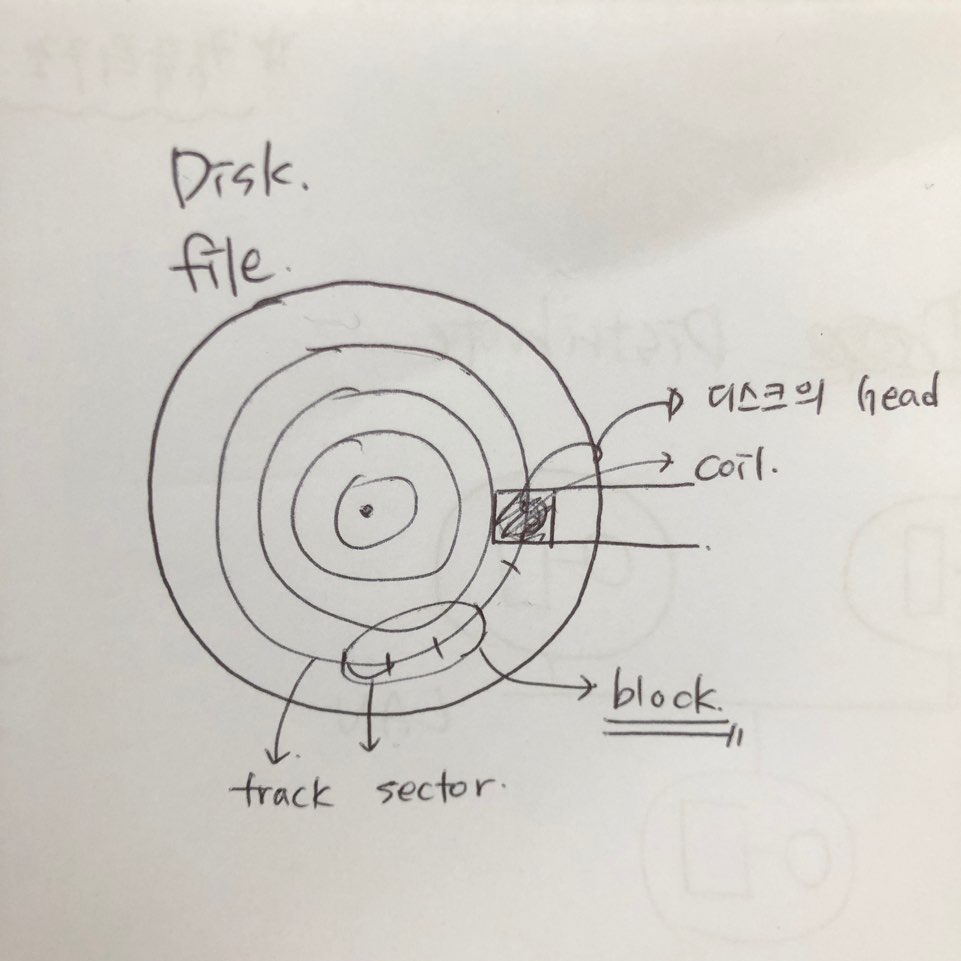 Disk.
file.
디스크의 head
coil.
block.
track sector.